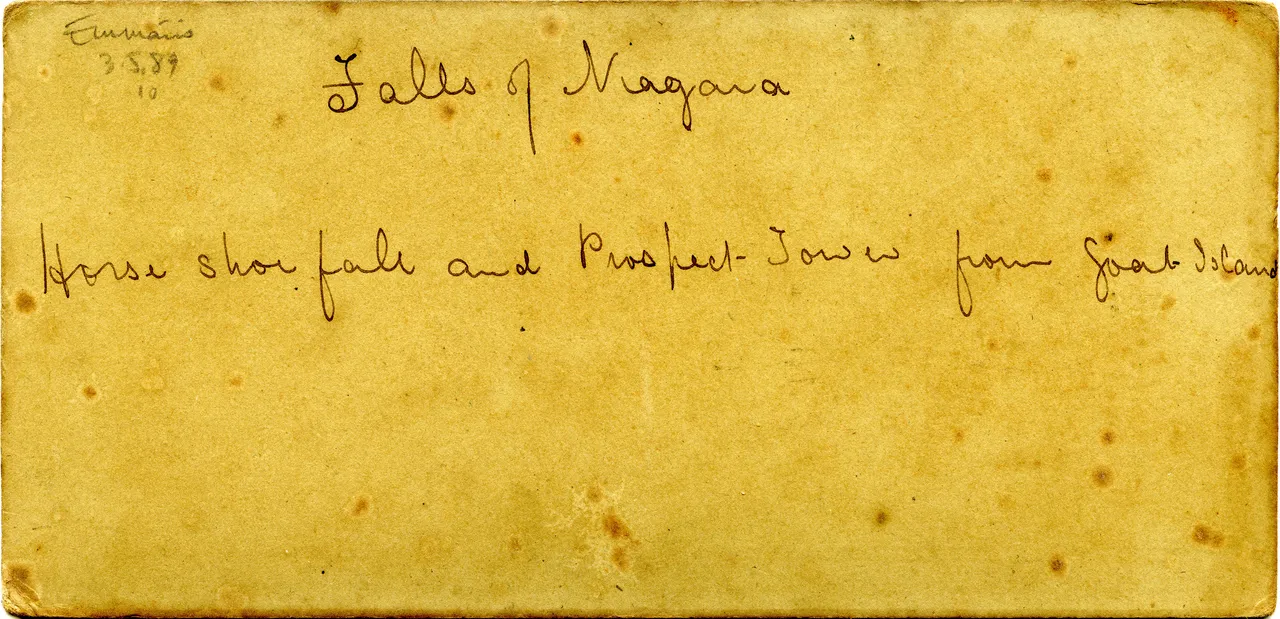 3.5.89
10
Falls of Niagara
Horse shoe fall and Prospect Tower from Goat Island